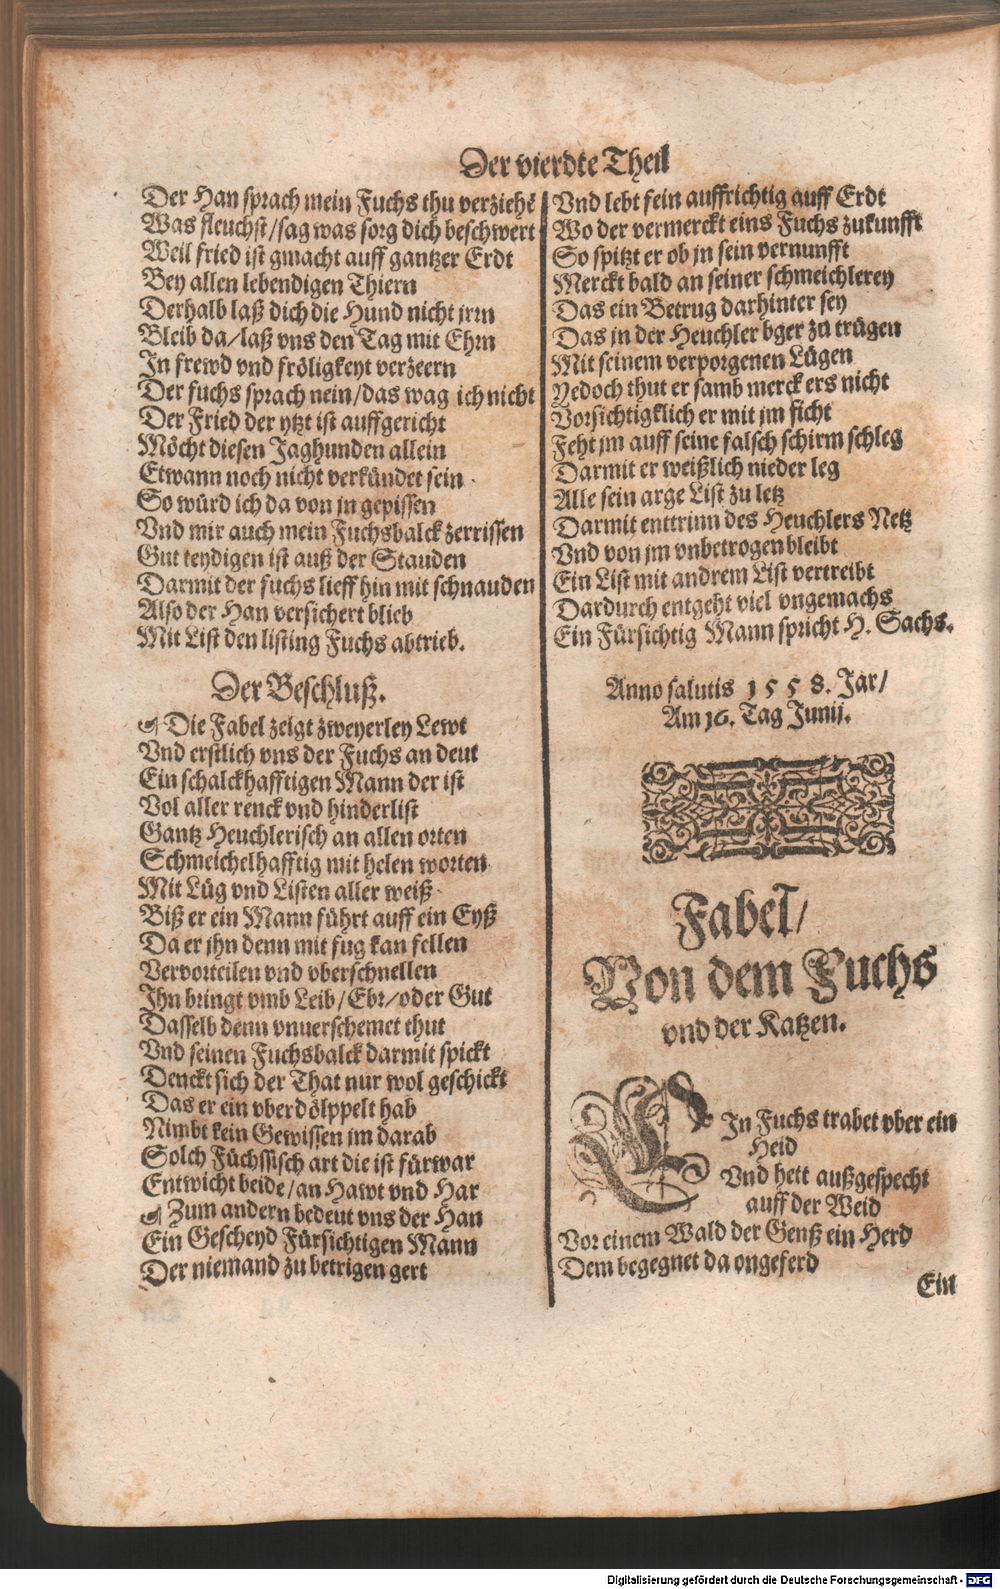 Der vierdte Theil
Der Han sprach mein Fuchs thu verziehẽ
Was fleuchst/sag was sorg dich beschwert
Weil fried ist gmacht auff gantzer Erdt
Bey allen lebendigen Thiern
Derhalb laß dich die Hund nicht jrrn
Bleib da/laß vns den Tag mit Ehrn
In frewd vnd fröligkeyt verzeern
Der fuchs sprach nein/das wag ich nicht
Der Fried der ytzt ist auffgericht
Möcht diesen Jaghunden allein
Etwann noch nicht verkündet sein
So würd ich da von jn gepissen
Vnd mir auch mein Fuchsbalck zerrissen
Gut teydigen ist auß der Stauden
Darmit der fuchs lieff hin mit schnauden
Also der Han versichert blieb
Mit List den listing Fuchs abtrieb.
Der Beschluß.
Die Fabel zeigt zweyerley Lewt
Vnd erstlich vns der Fuchs an deut
Ein schalckhafftigen Mann der ist
Vol aller renck vnd hinderlist
Gantz Heuchlerisch an allen orten
Schmeichelhafftig mit helen worten
Mit Lüg vnd Listen aller weiß
Biß er ein Mann führt auff ein Eyß
Da er jhn denn mit fug kan fellen
Vervorteilen vnd vberschnellen
Jhn bringt vmb Leib/Ehr/oder Gut
Dasselb denn vnuerschemet thut
Vnd seinen Fuchsbalck darmit spickt
Denckt sich der That nur wol geschickt
Das er ein vberdölppelt hab
Nimbt kein Gewissen jm darab
Solch Füchssisch art die ist fürwar
Entwicht beide/an Hawt vnd Har
Zum andern bedeut vns der Han
Ein Gescheyd Fürsichtigen Mann
Der niemand zu betrigen gert
Vnd lebt fein auffrichtig auff Erdt
Wo der vermerckt eins Fuchs zukunfft
So spitzt er ob jn sein vernunfft
Merckt bald an seiner schmeichlerey
Das ein Betrug darhinter sey
Das jn der Heuchler bger zu trügen
Mit seinem verporgenen Lügen
Yedoch thut er samb merck ers nicht
Vorsichtigklich er mit jm ficht
Feht jm auff seine falsch schirm schleg
Darmit er weißlich nieder leg
Alle sein arge List zu letz
Darmit enttrinn des Heuchlers Netz
Vnd von jm vnbetrogen bleibt
Ein List mit andrem List vertreibt
Dardurch entgeht viel vngemachs
Ein Fürsichtig Mann spricht H. Sachs.
Anno salutis 1558. Jar/
Am 16. Tag Junij.
Fabel/
Von dem Fuchs
vnd der Katzen.
EIn Fuchs trabet vber ein
Heid
Vnd hett außgespecht
auff der Weid
Vor einem Wald der Genß ein Herd
Dem begegnet da ongeferd
Ein
Digitalisierung gefördert durch die Deutsche Forschungsgemeinschaft - DFG